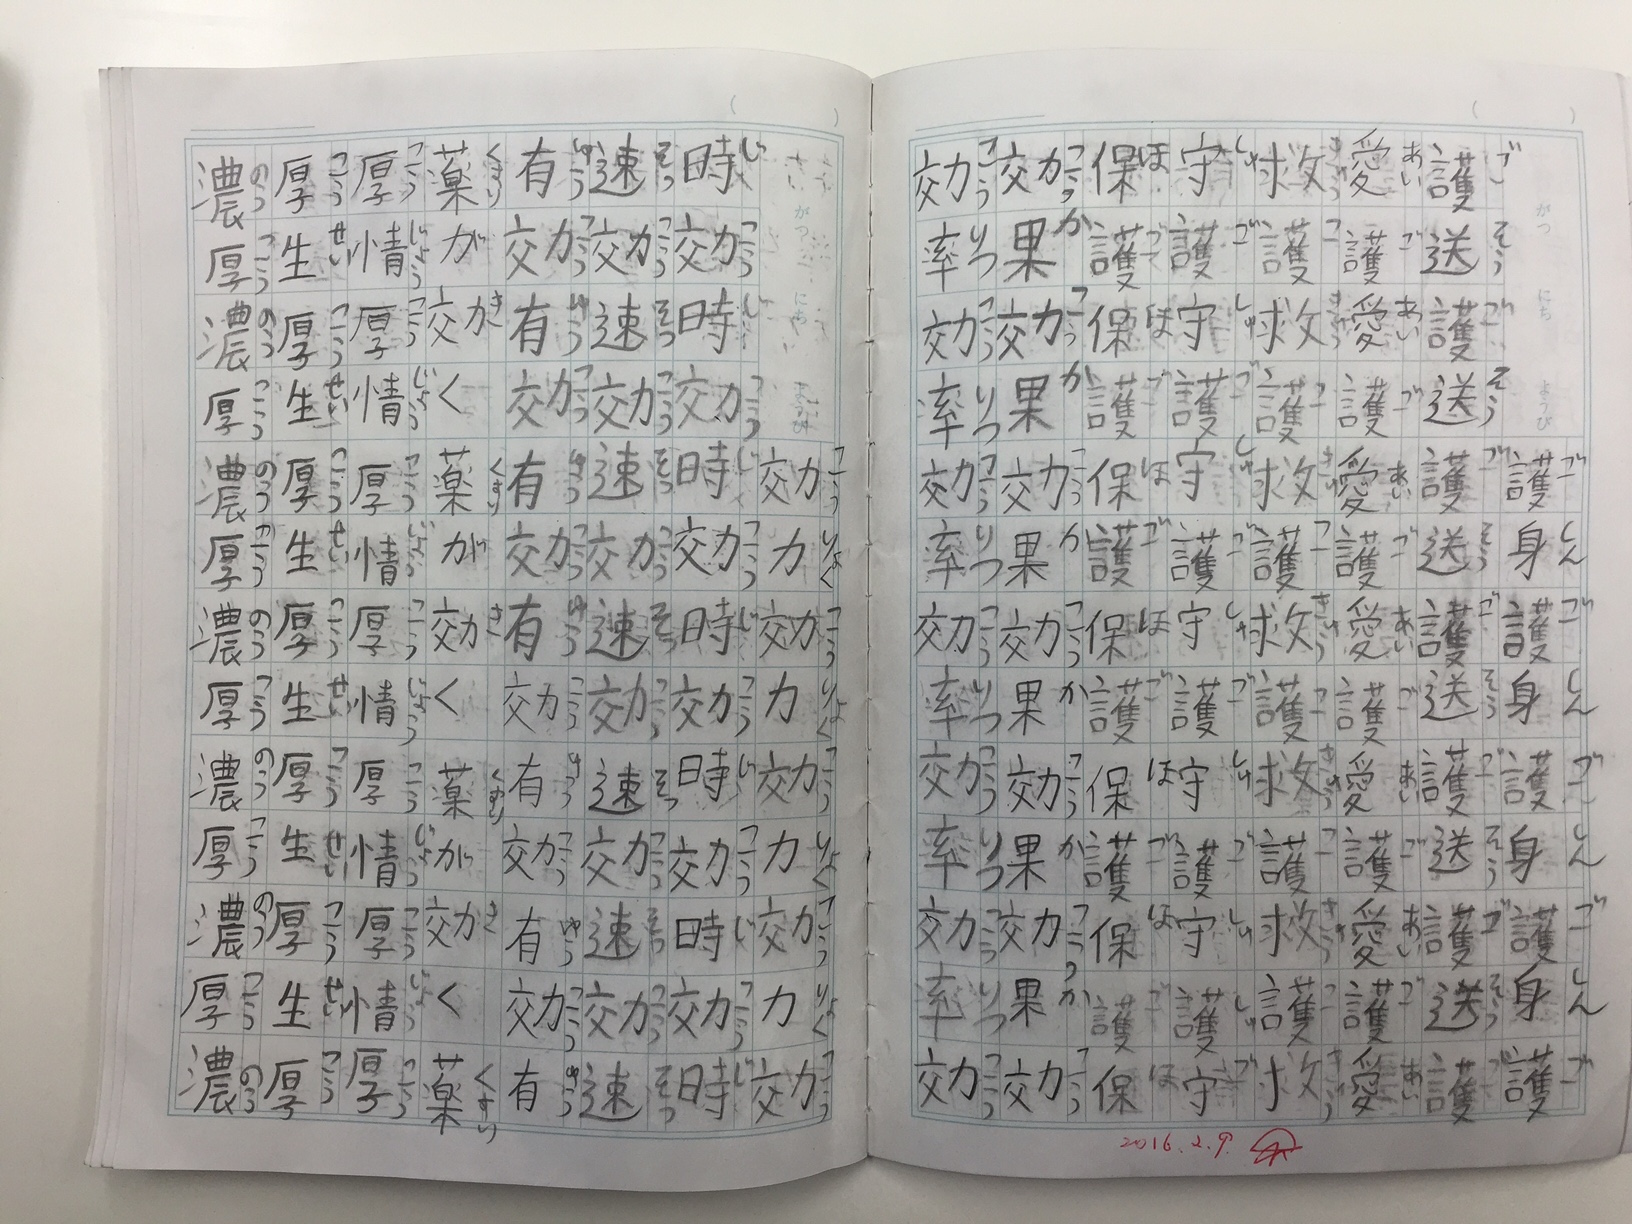 がつ にち ようび
護身護身護身護身護
ごしんごしんごしんごしんご
護送護送護送護送護送護送護
ごそうごそうごそうごそうごそうごそうご
愛護愛護愛護愛護愛護愛護愛
あいごあいごあいごあいごあいごあいごあい
救護救護救護救護救護救護救
きゅうごきゅうごきゅうごきゅうごきゅうごきゅうごきゅう
守護守護守護守護守護守護守
しゅごしゅごしゅごしゅごしゅご
保護保護保護保護保護保護保
ほごほごほごほごほごほごほ
効果効果効果効果効果効果効
こうかこうかこうかこうかこうかこうかこう
効率効率効率効率効率効率効
こうりつこうりつこうりつこうりつこうりつこうりつこう
2016.2.9.
がつ にち
効力効力効力効力効
こうりょくこうりょくこうりょくこうりょくこう
時効時効時効時効時効時効時
じこうじこうじこうじこうじこうじこうじ
速効速効速効速効速効速効速
そっこうそっこうそっこうそっこうそっこうそっこうそっ
有効有効有効有効有効有効有
ゆうこうゆうこうゆうこうゆうこうゆうこうゆうこうゆう
薬が効く薬が効く薬が効く薬
くすりきくすりきくすりきくすり
厚情厚情厚情厚情厚情厚情厚
こうじょうこうじょうこうじょうこうじょうこうじょうこうじょうこう
厚生厚生厚生厚生厚生厚生厚
こうせいこうせいこうせいこうせいこうせいこうせいこう
濃厚濃厚濃厚濃厚濃厚濃厚濃
のうこうのうこうのうこうのうこうのうこうのうこうのう